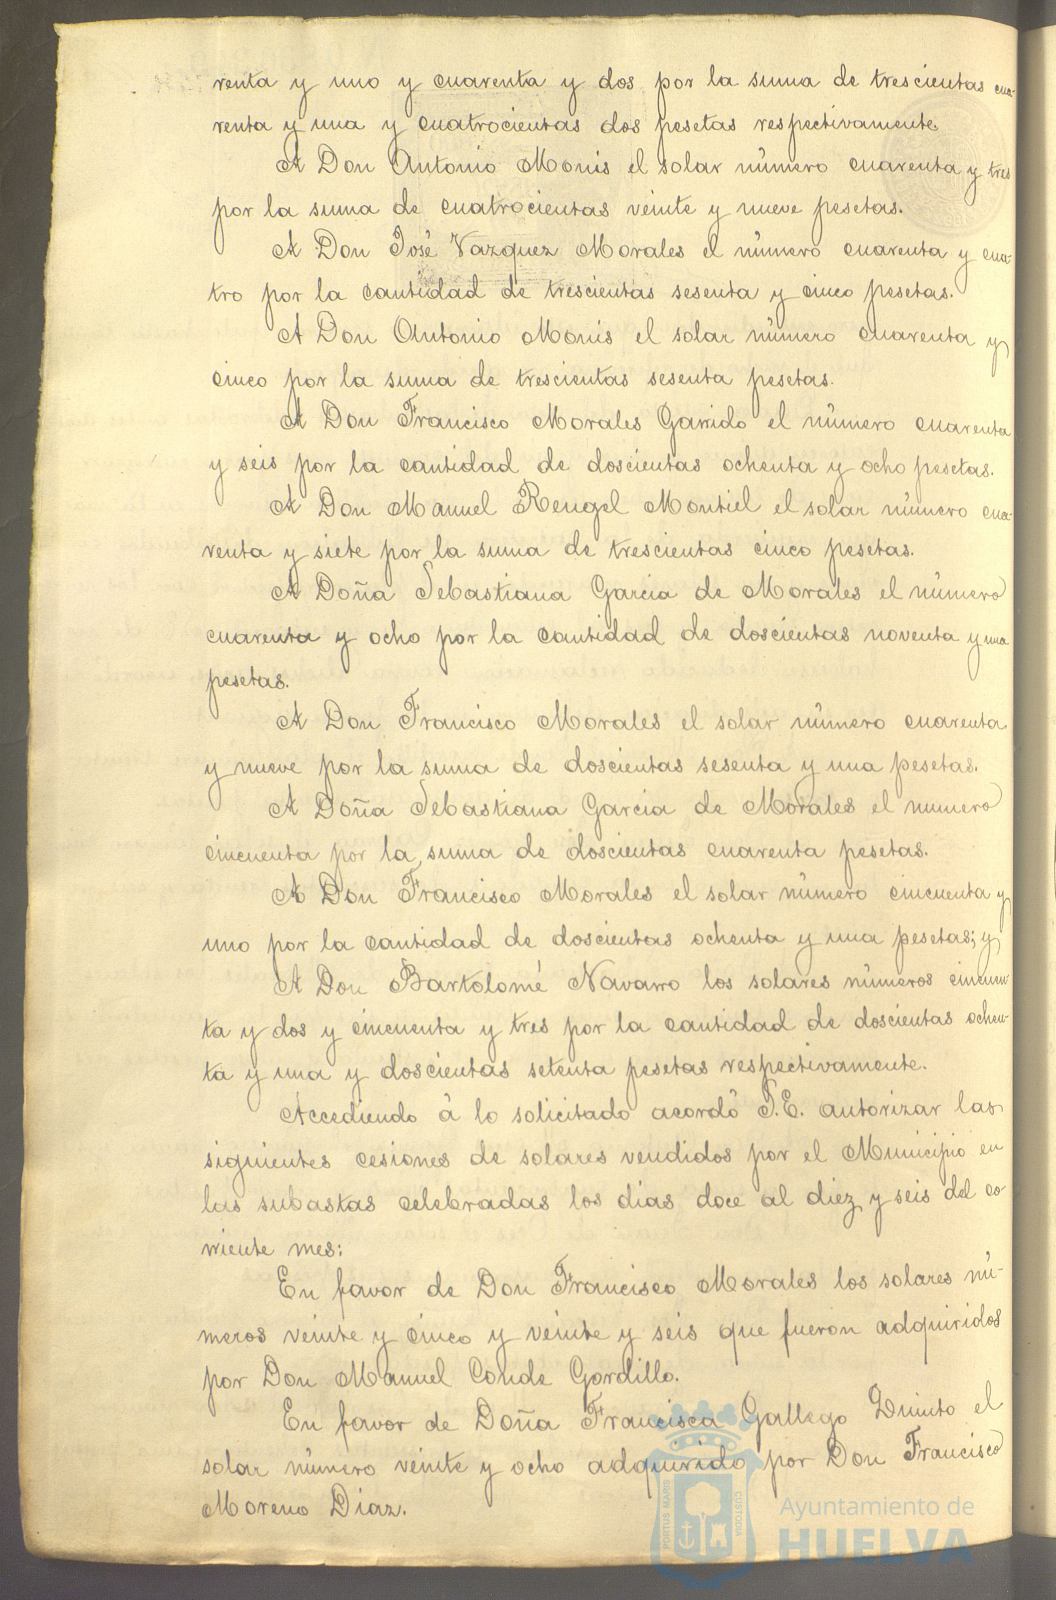 renta y uno y cuarenta y dos por la suma de trescientas cua-
renta y una y cuatrocientas dos pesetas respectivamente.
A Don Antonio Monis el solar número cuarenta y tres
por la suma de cuatrocientas veinte y nueve pesetas.
A Don José Vazquez Morales el número cuarenta y cua-
tro por la cantidad de trescientas sesenta y cinco pesetas.
A Don Antonio Monis el solar número cuarenta y
cinco por la suma de trescientas sesenta pesetas.
A Don Francisco Morales Garrido el número cuarenta
y seis por la cantidad de doscientas ochenta y ocho pesetas.
A Don Manuel Rengel Montiel el solar número cua-
renta y siete por la suma de trescientas cinco pesetas.
A Doña Sebastiana Garcia de Morales el número
cuarenta y ocho por la cantidad de doscientas noventa y una
pesetas.
A Don Francisco Morales el solar número cuarenta
y nueve por la suma de doscientas sesenta y una pesetas.
A Doña Sebastiana Garcia de Morales el numero
cincuenta por la suma de doscientas cuarenta pesetas.
A Don Francisco Morales el solar número cincuenta y
uno por la cantidad de doscientas ochenta y una pesetas; y
A Don Bartolomé Navarro los solares números cincuen-
ta y dos y cincuenta y tres por la cantidad de doscientas ochen-
ta y una y doscientas setenta pesetas respectivamente.
Accediendo á lo solicitado acordó S.E. autorizar las
siguientes cesiones de solares vendidos por el Municipio en
las subastas celebradas los dias doce al diez y seis del co-
rriente mes:
En favor de Don Francisco Morales los solares nú-
meros veinte y cinco y veinte y seis que fueron adquiridos
por Don Manuel Conde Gordillo.
En favor de Doña Francisca Gallego Quinto el
solar número veinte y ocho adquirido por Don Francisco
Moreno Diaz.
PORTUS MARIS
CUSTODIA
Ayuntamiento de
HUELVA